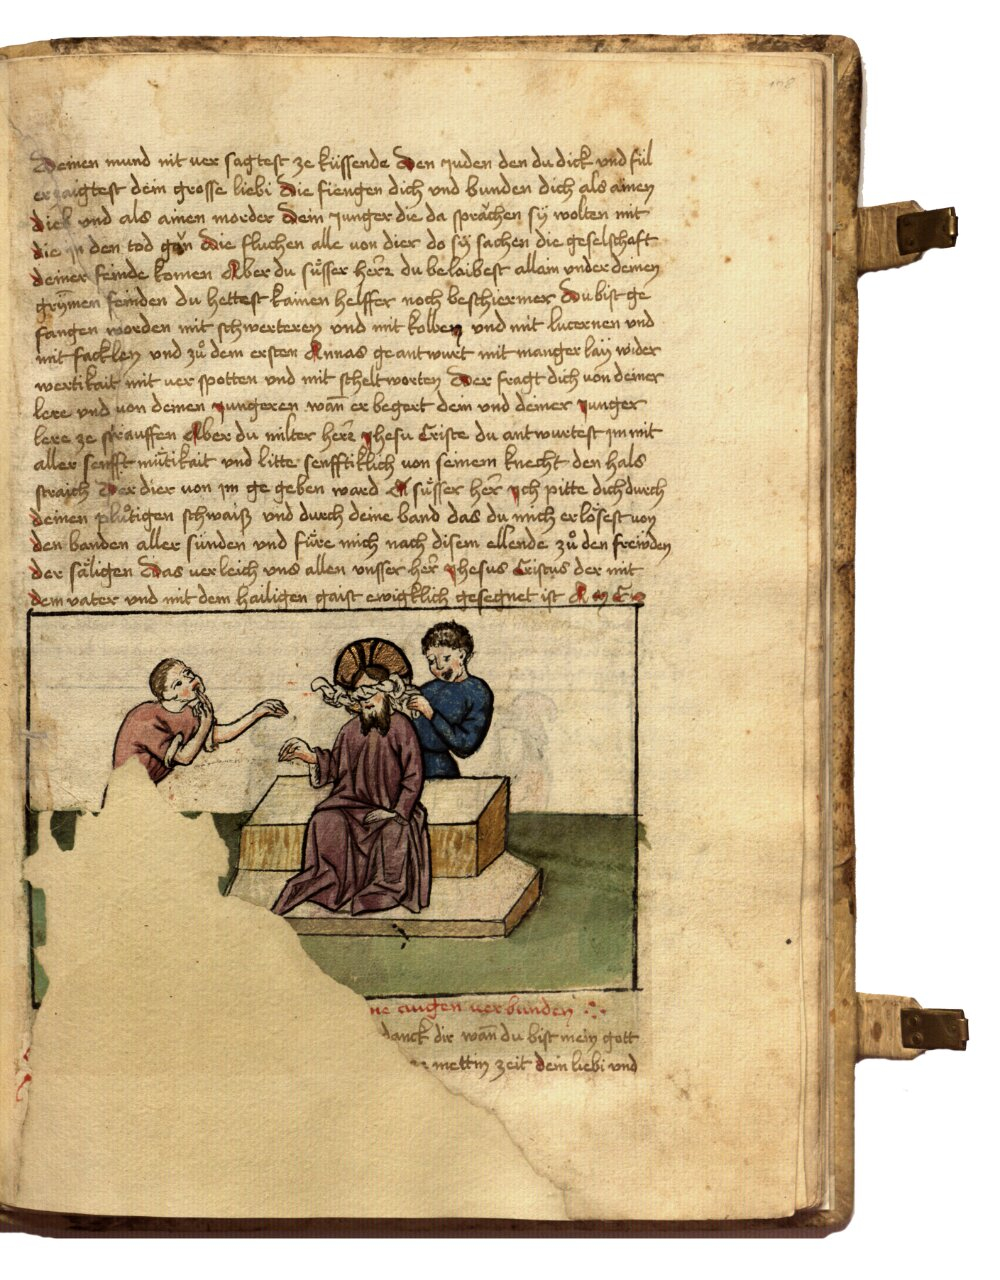 108
Deinen mund nit ver sagtest ze küssende Den juden den du dick und fúl
erzaigtest dein grosse liebi Die fiengen dich und bunden dich als ainen
dieb und als ainen morder Dein junger die da sprǎchen sÿ wolten mit
die in den tod gǒn Die fluchen alle von dier do sÿ sachen die geselschaft
deiner feinde komen Aber du sůsser herr du belaibest allain under deinen
grÿmen feinden du hettest kainen helffer noch beschiermer Du bist ge
fangen worden mit schwerteren und mit kolben und mit lucernen und
mit facklen und zů dem ersten Annas geantwurt mit manger laÿ wider
wertikait mit ver spotten und mit scheltworten Der fragt dich von deiner
lere und von deinen jungeren wan̄ er begert dein und deiner junger
lere ze strauffen Aber du milter herr jhesu Criste du antwurtest jm mit
aller senfft mütikait und litte senfftiklich von seinem knecht den hals
straich Der dier von jm ge geben ward A süsser herr jch pitte dich durch
deinen plůtigen schwaiß und durch deine band das du mich erlösest von
den banden aller sünden und füre mich nach disem ellende zů den freẅden
der säligen Das verleich uns allen unsser herr jhesus Cristus der mit
dem vater und mit dem hailigen gaist ewigklich gesegnet ist A M E N
ne augen verbunden
danck dir wan̄ du bist mein gott
mettin zeit dein liebi und